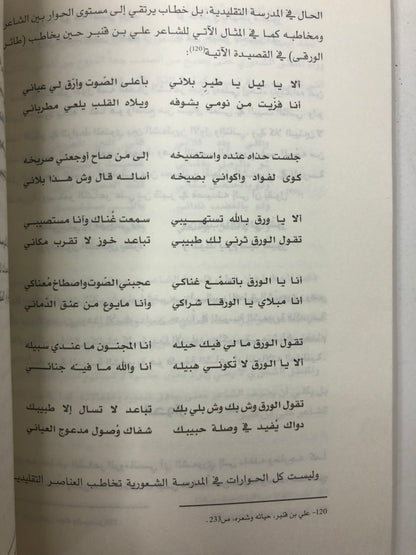 الحال في المدرسة التقليدية، بل خطاب يرتقي إلى مستوى الحوار بين الشاعر
ومخاطبه كما في المثال الآتي للشاعر علي بن قنبر حين يخاطب (طائر
الورقى) في القصيدة الآتية(120):
ألا يا ليل يا طير بلاني بأعلى الصّوت وازق لي عباني
أنا فزّيت من نومي بشوفه وبلاه القلب يلعي مطرباني
جلست حذاه عنده واستصيخه إلى من صاح أوجعني صريخه
كوى لفواد واكواني بصيخه أساله قال وش هذا بلاني
ألا يا ورق بالله تستهيبي سمعت غناك وأنا مستصيبي
تقول الورق ثرني لك طبيبي تباعد خوز لا تقرب مكاني
أنا يا الورق باتسمّع غناكي عجبني الصّوت واصطاع مغناكي
أنا مبلاي يا الورقا شراكي وأنا مايوع من عنق الدّماني
تقول الورق ما لي فيك حيله أنا المجنون ما عندي سبيله
ألا يا الورق لا تكوني هبيله أنا والله ما فيه جناني
تقول الورق وش بك وش بلي بك تباعد لا تسال إلا طبيبك
دواك يُفيد في وصلة حبيبك شفاك وُصول مدعوج العياني
وليست كل الحوارات في المدرسة الشعورية تخاطب العناصر التقليدية
120- علي بن قنبر، حياته وشعره، ص233.